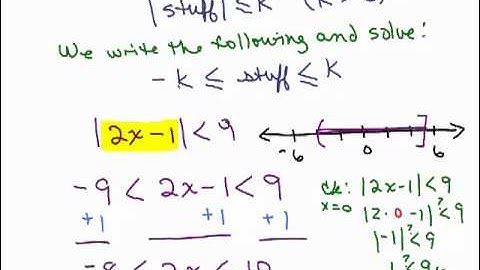 |stuff| ≤ K (K
We write the following and solve:
-K ≤ stuff ≤ K
|2x-1| < 9
-6 0 6
-9 < 2x-1 < 9
+1 +1 +1
-8 < 2x < 10
ck: |2x-1| < 9
x=0 |2·0-1| ?< 9
|-1| ?< 9
1 ?< 9